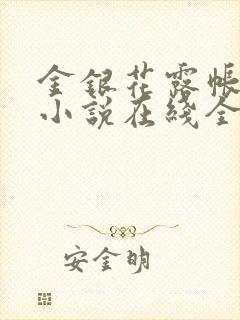 金銀花露帳
小説在綫全
安金明